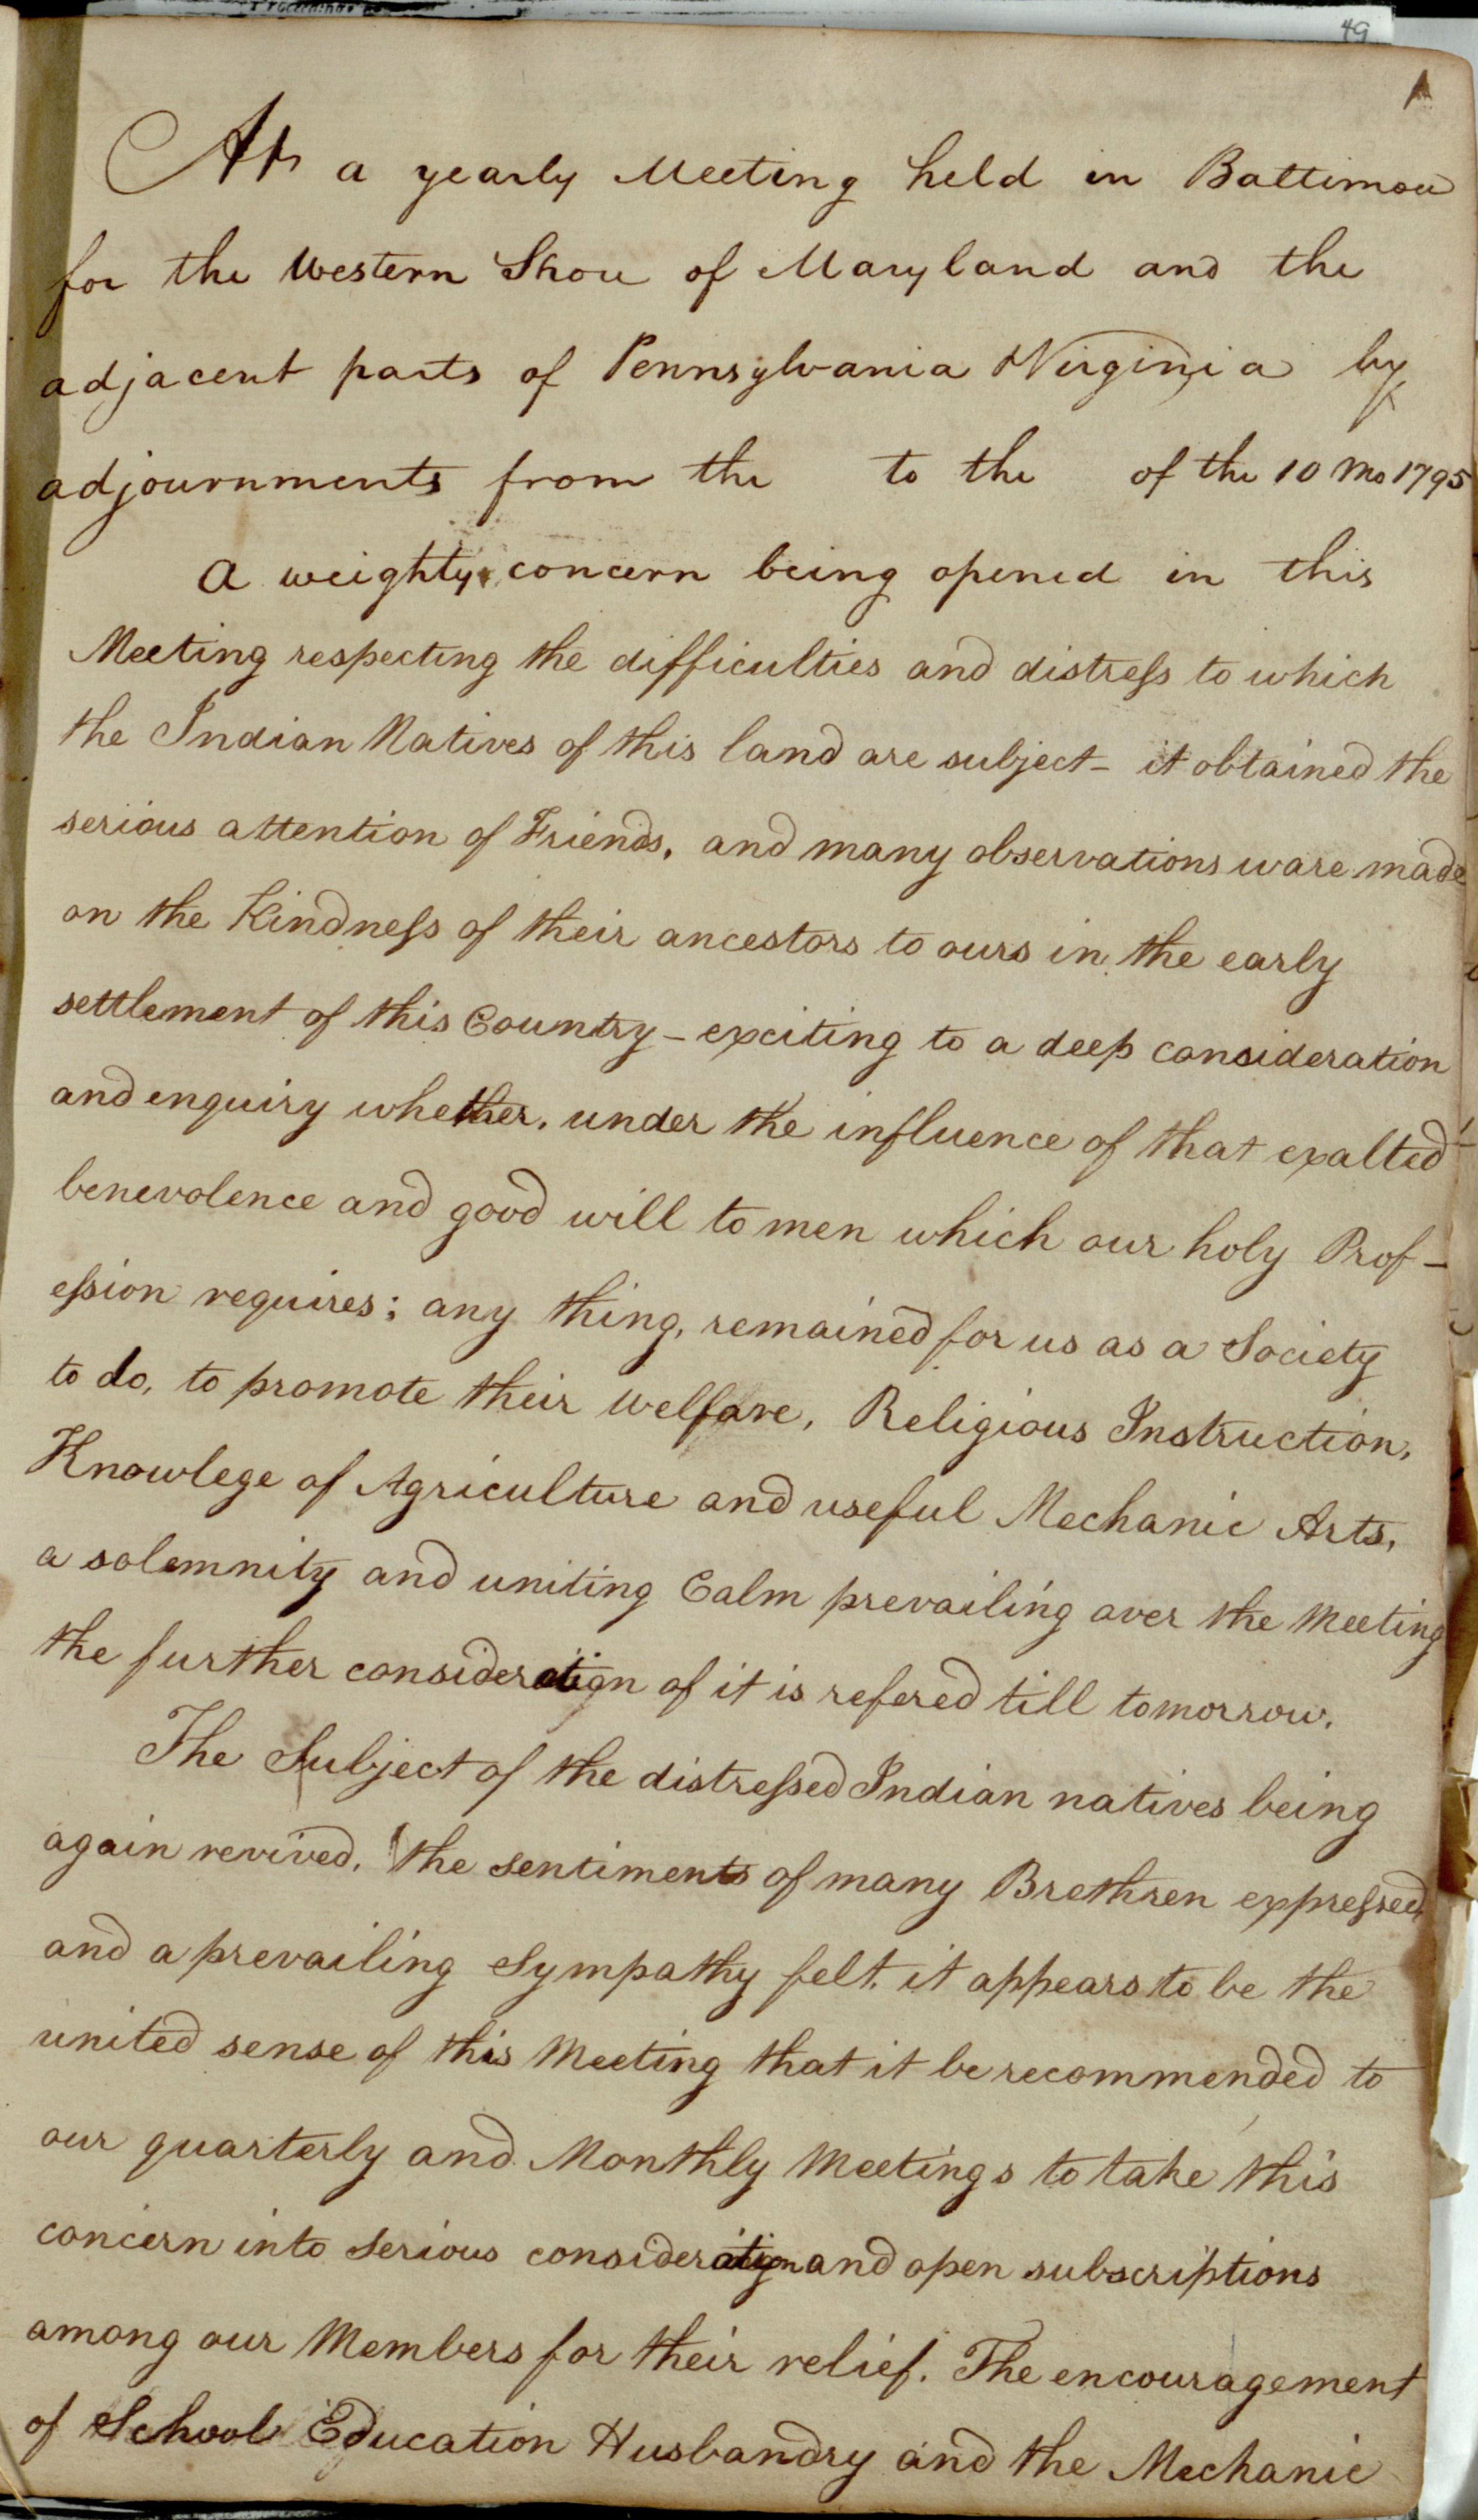 49
1
At a yearly Meeting held in Baltimore
for the Western Shore of Maryland and the
adjacent parts of Pennsylvania & Virginia by
adjournments from the to the of the 10 Mo 1795
A weighty concern being opened in this
Meeting respecting the difficulties and distress to which
the Indian Natives of this land are subject - it obtained the
serious attention of Friends, and many observations ware made
on the Kindness of their ancestors to ours in the early
settlement of this Country - exciting to a deep consideration
and enquiry whether, under the influence of that exalted
benevolence and good will to men which our holy Prof-
ession requires; any thing, remained for us as a Society
to do, to promote their welfare, Religious Instruction,
Knowlege of Agriculture and useful Mechanic Arts,
a solemnity and uniting Calm prevailing over the Meeting
the further consideration of it is refered till tomorrow.
The Subject of the distressed Indian natives being
again revived, the sentiments of many Brethren expressed
and a prevailing Sympathy felt, it appears to be the
united sense of this Meeting that it be recommended to
our quarterly and Monthly Meetings to take this
concern into Serious consideration and open subscriptions
among our Members for their relief. The encouragement
of School Education Husbandry and the Mechanic